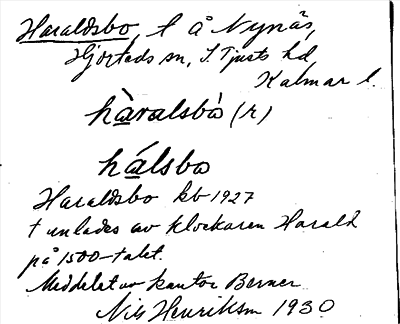 Haraldsbo, t å Nynäs,
Hjorteds sn, S. Tjusts hd
Kalmar l.
hàralsbò (r)
hálsbo
Haraldsbo kb 1927
t anlades av klockaren Harald
på 1500-talet.
Meddelat av kantor Berner
Nils Henriksson 1930